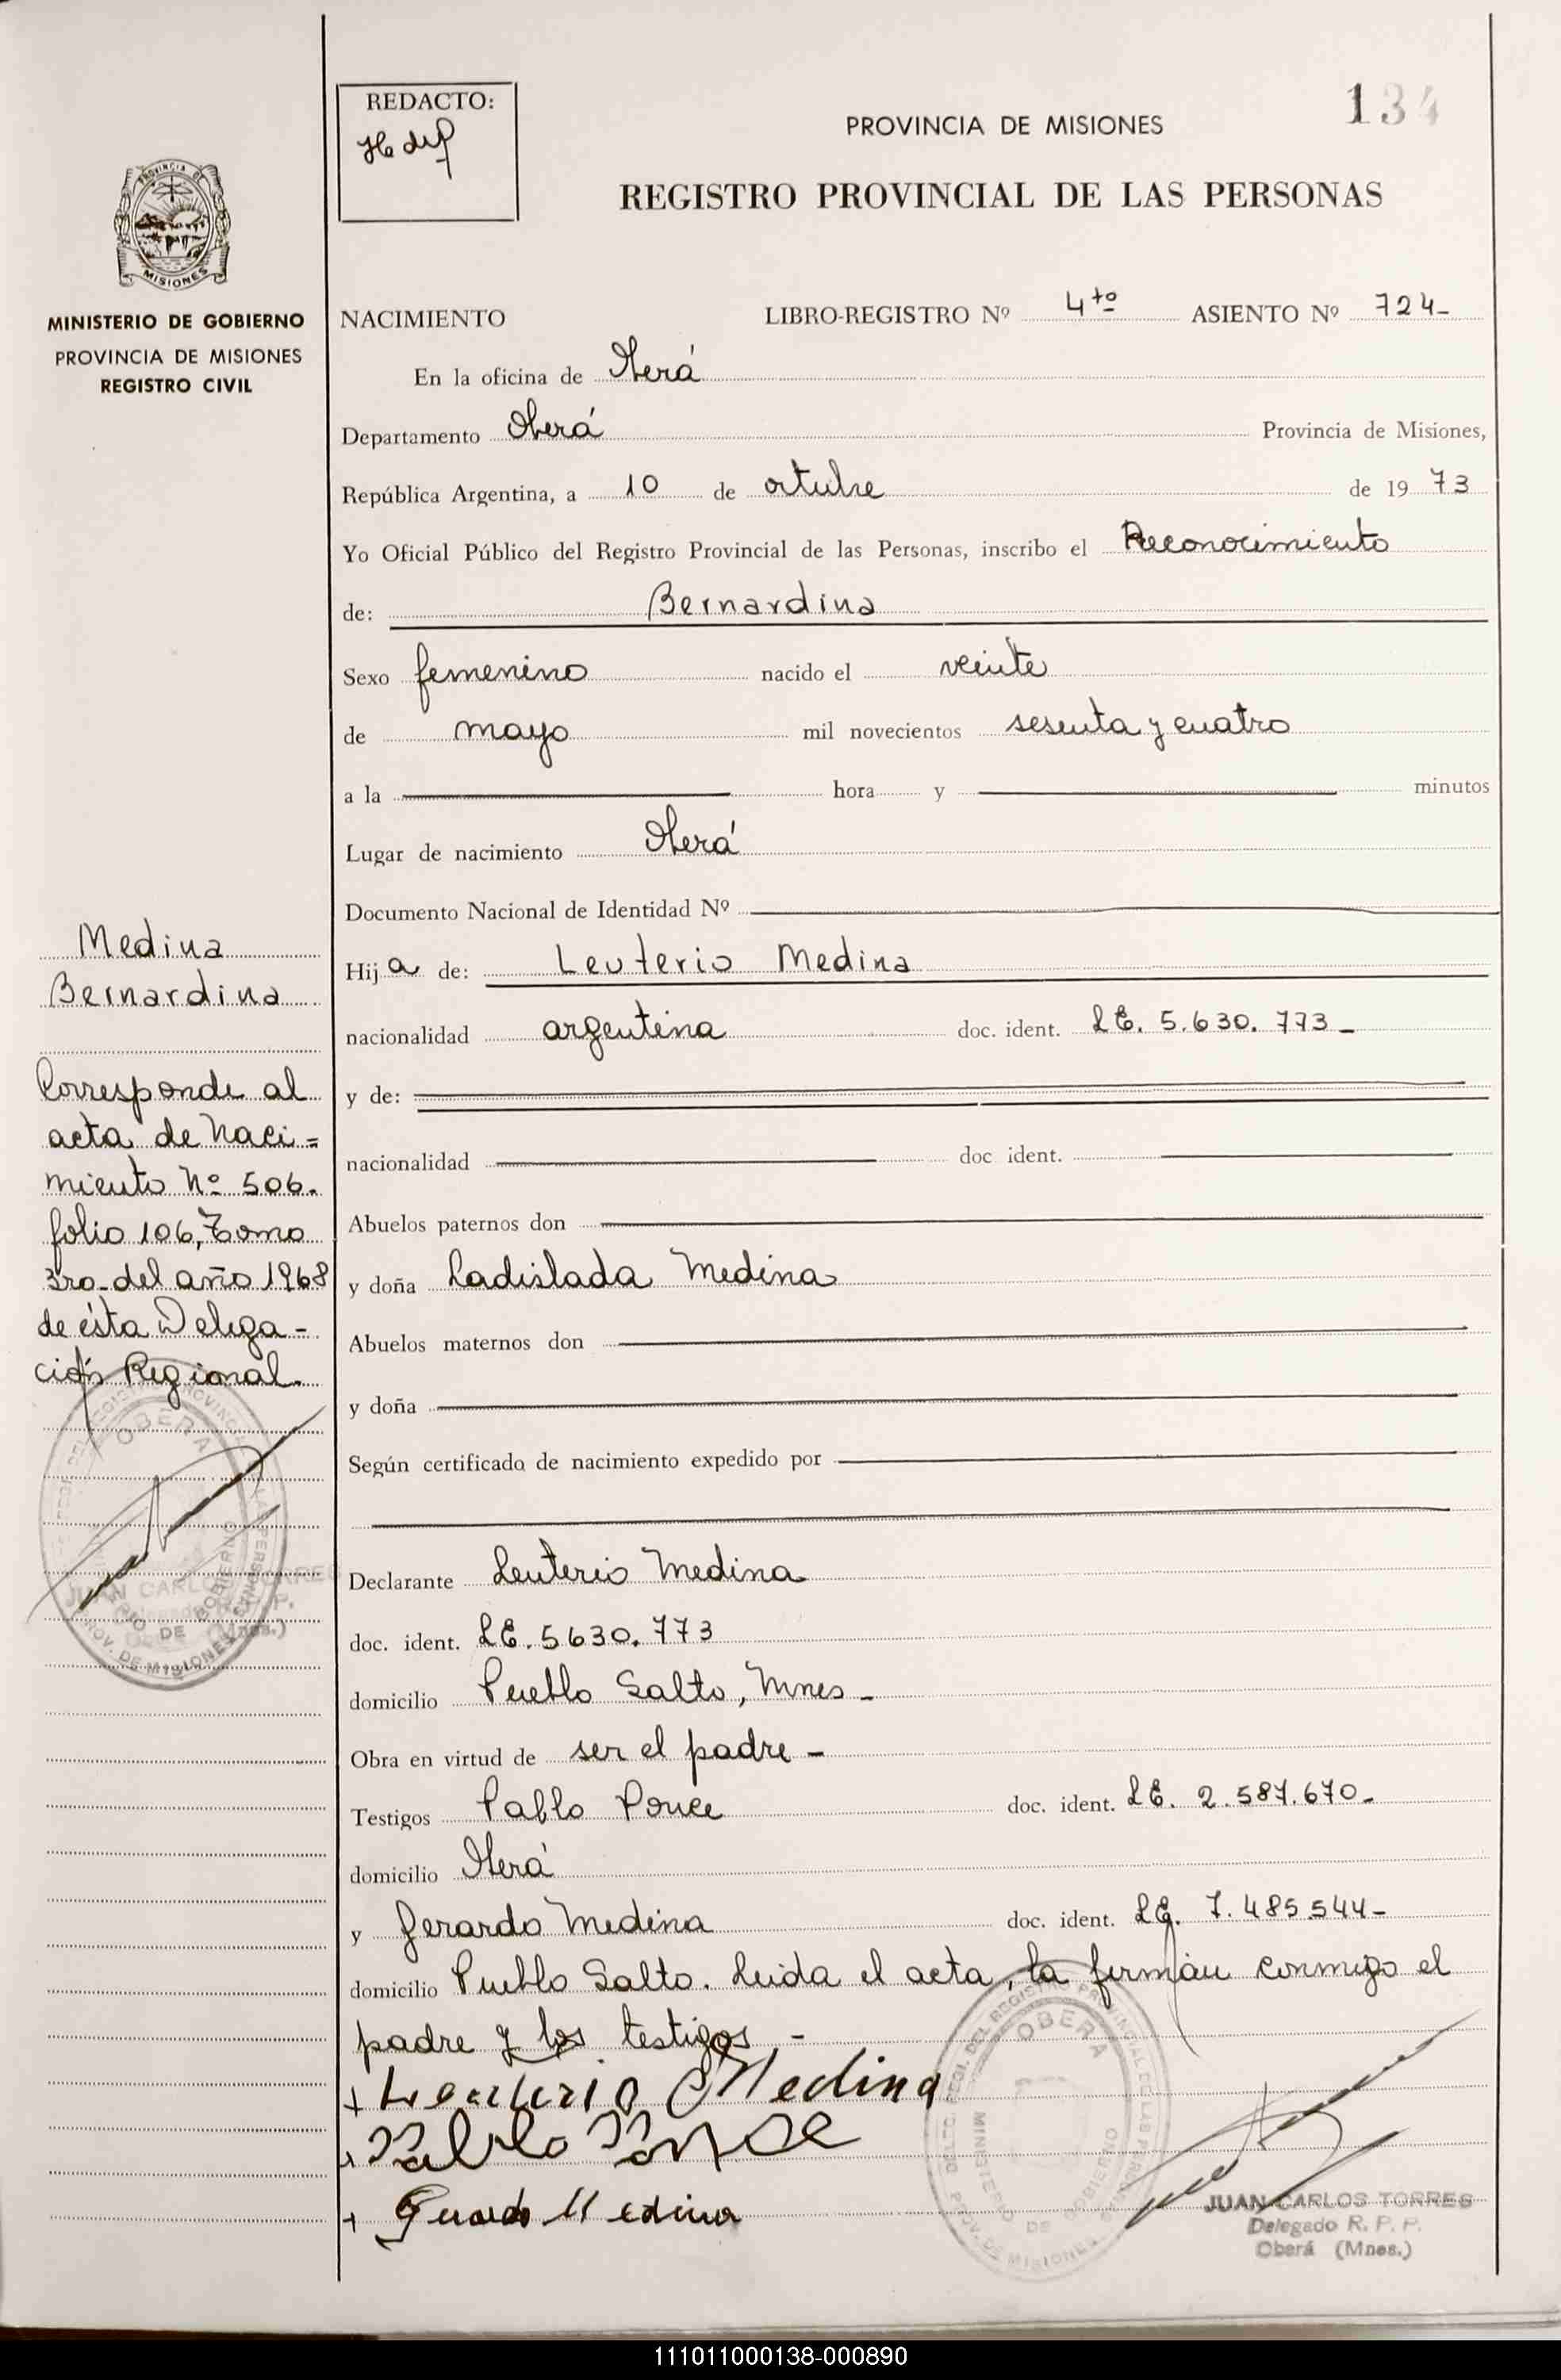 134
REDACTO:
PROVINCIA DE MISIONES
REGISTRO PROVINCIAL DE LAS PERSONAS
PROVINCIA DE
MISIONES
MINISTERIO DE GOBIERNO
PROVINCIA DE MISIONES
REGISTRO CIVIL
NACIMIENTO LIBRO-REGISTRO Nº 4to ASIENTO Nº 724-
En la oficina de Oberá
Departamento Oberá Provincia de Misiones,
República Argentina, a 10 de octubre de 1973
Yo Oficial Público del Registro Provincial de las Personas, inscribo el Reconocimiento
de: Bernardina
Sexo femenino nacido el veinte
de mayo mil novecientos sesenta y cuatro
a la hora y minutos
Lugar de nacimiento Oberá
Documento Nacional de Identidad Nº
Hija de: Leuterio Medina
nacionalidad argentina doc. ident. LE. 5.630.773-
y de:
nacionalidad doc ident.
Abuelos paternos don
y doña Ladislada Medina
Abuelos maternos don
y doña
Según certificado de nacimiento expedido por
Declarante Leuterio Medina
doc. ident. LE. 5630.773
domicilio Pueblo Salto, Mnes-
Obra en virtud de ser el padre-
Testigos Pablo Ponce doc. ident. LE. 2.587.670-
domicilio Oberá
y Gerardo Medina doc. ident. LE. 7.485.544-
domicilio Pueblo Salto. Leida el acta, la firman conmigo el
padre y los testigos-
Leuterio Medina
Pablo Ponce
Gerardo Medina
JUAN CARLOS TORRES
Delegado R. P. P.
Oberá (Mnes.)
Medina
Bernardina
Corresponde al
acta de Naci=
miento Nº 506.
folio 106, Tomo
3ro. del año 1968
de ésta Delega-
ción Regional.
OBERA
JUAN CARLOS TORRES
PROV. DE MISIONES
OBERA
MINISTERIO DE GOBIERNO
PROV. DE MISIONES
111011000138-000890